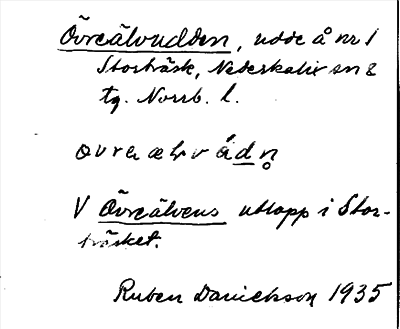 Övreälvudden, udde å nr 1
Storträsk, Nederkalix sn &
tg. Norrb. l.
V Övreälvens utlopp i Stor-
träsket.
Ruben Danielsson 1935